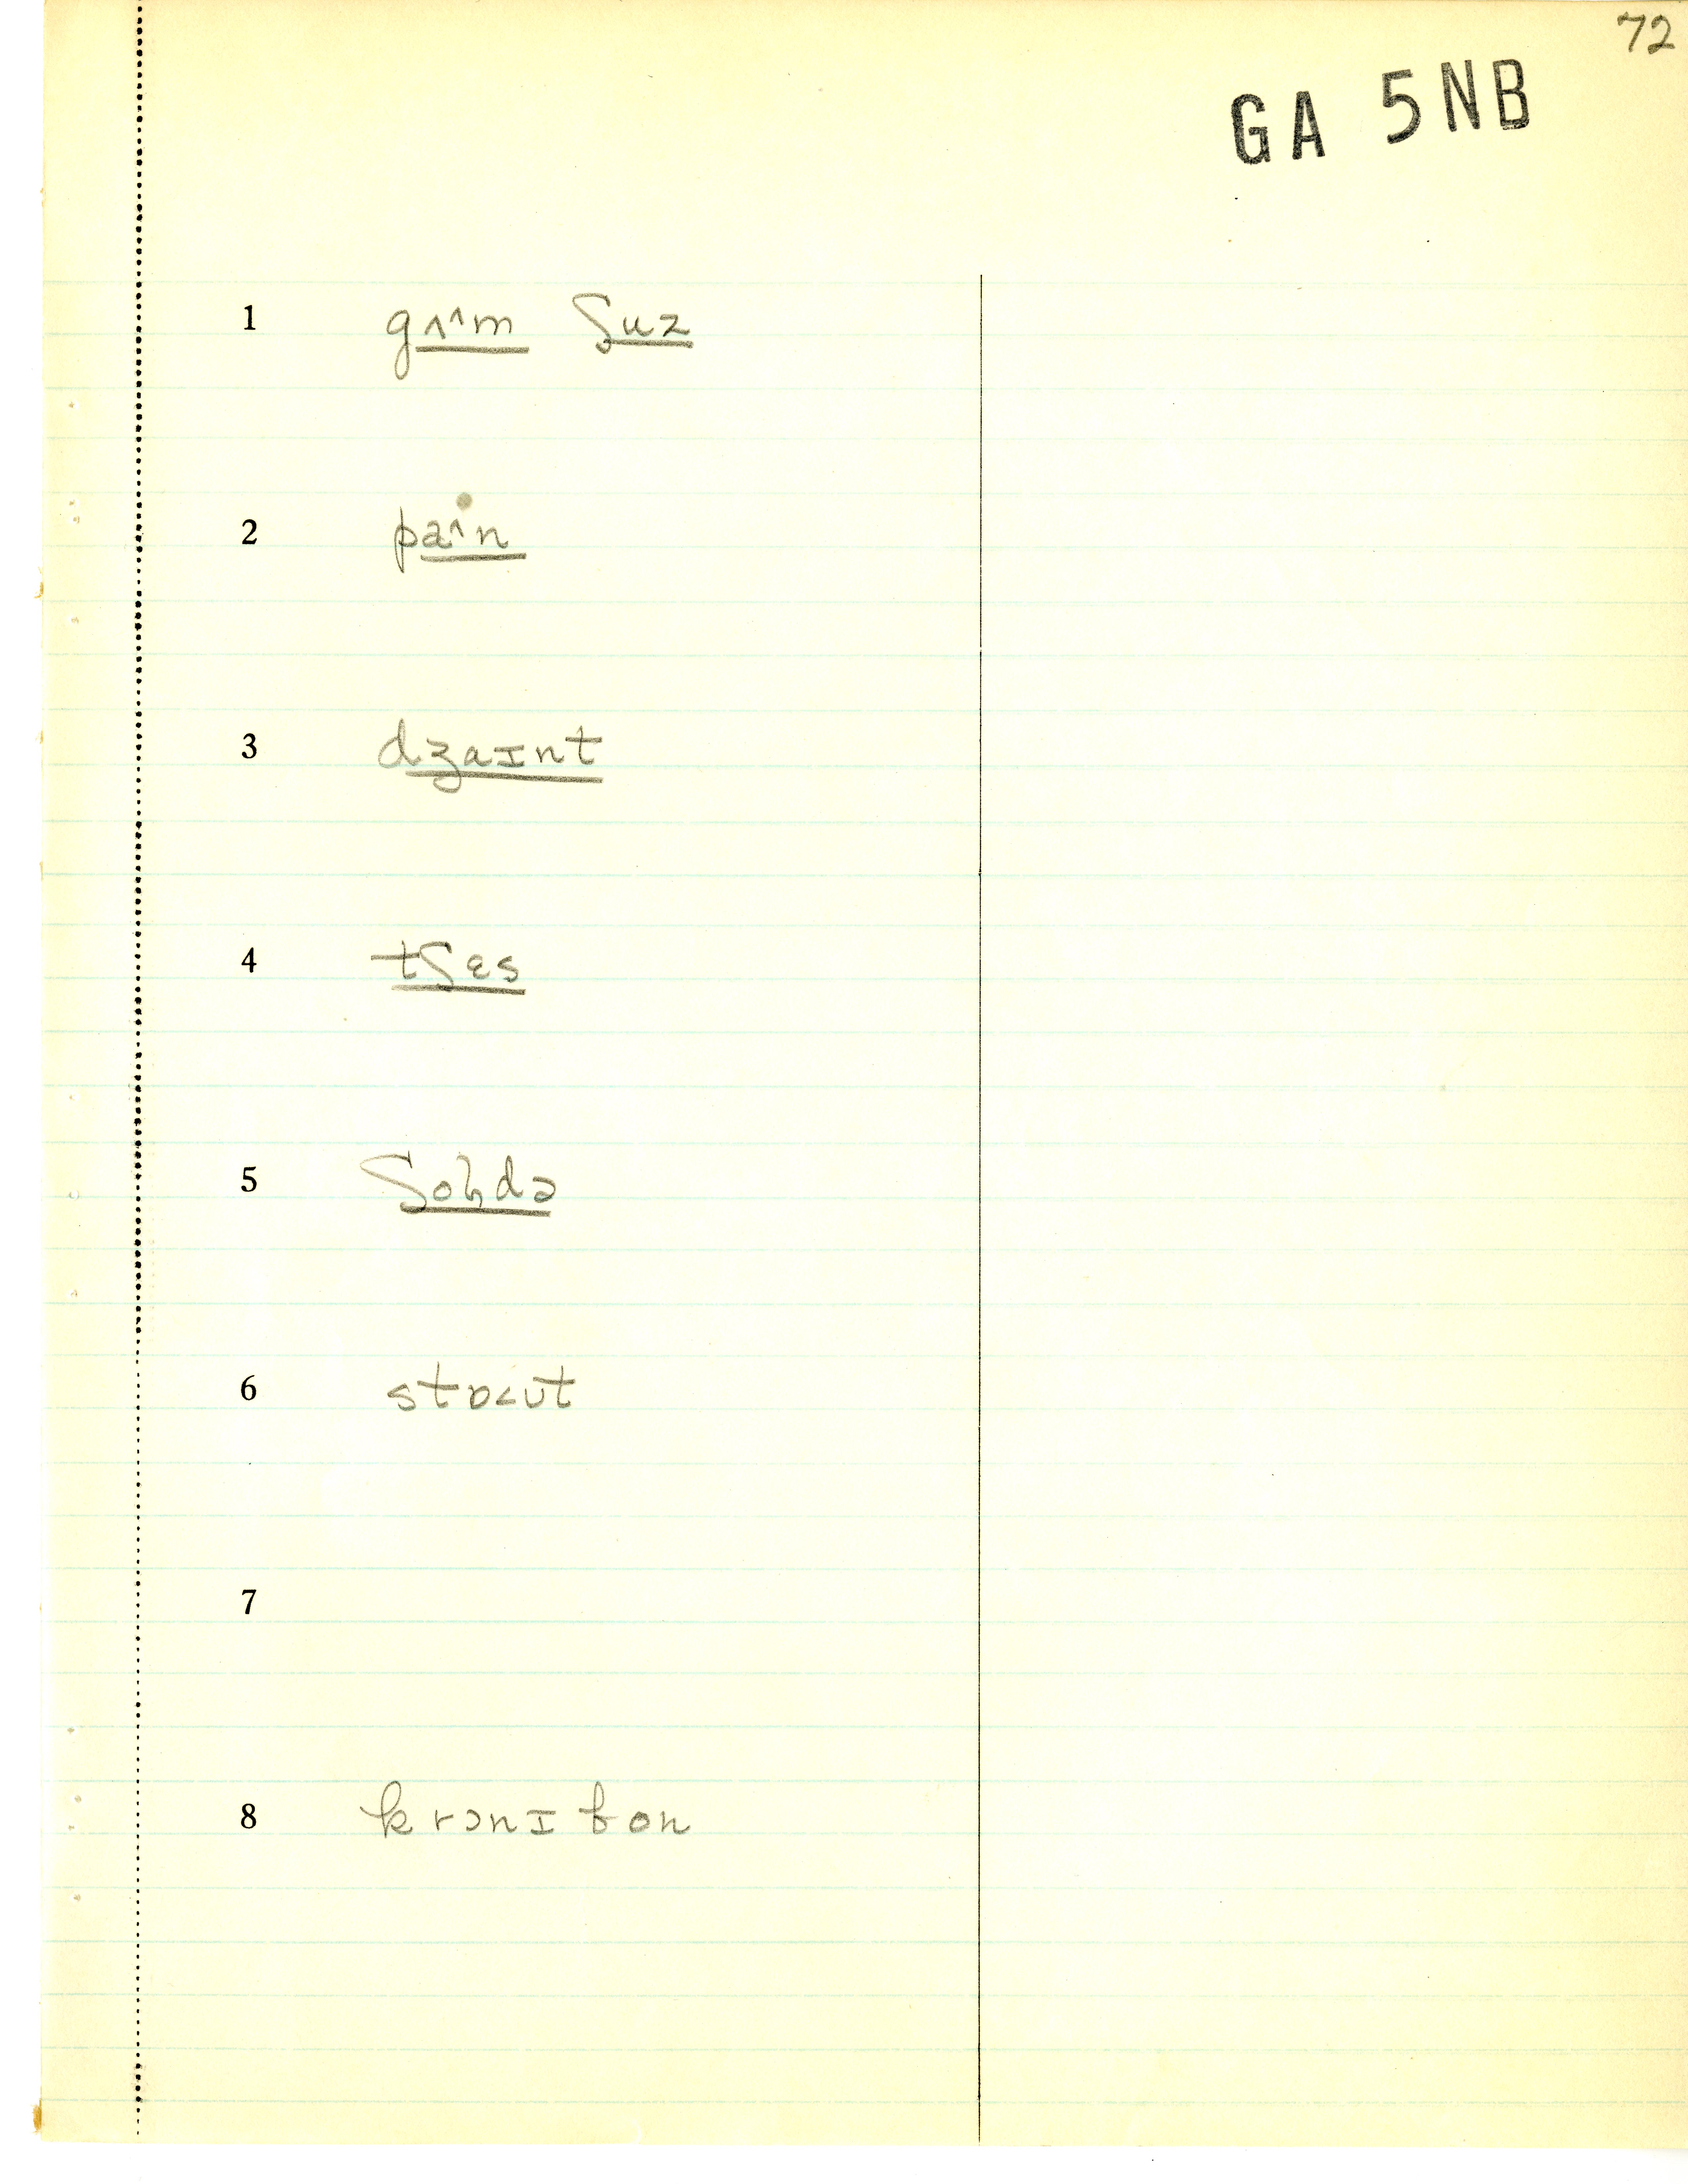 72
GA 5NB
1 gʌ^m ʃuz
2 pa^n
3 dʒaɪnt
4 tʃɛs
5 ʃoldə
6 stɒ<ut
7
8 krɔnɪ bon